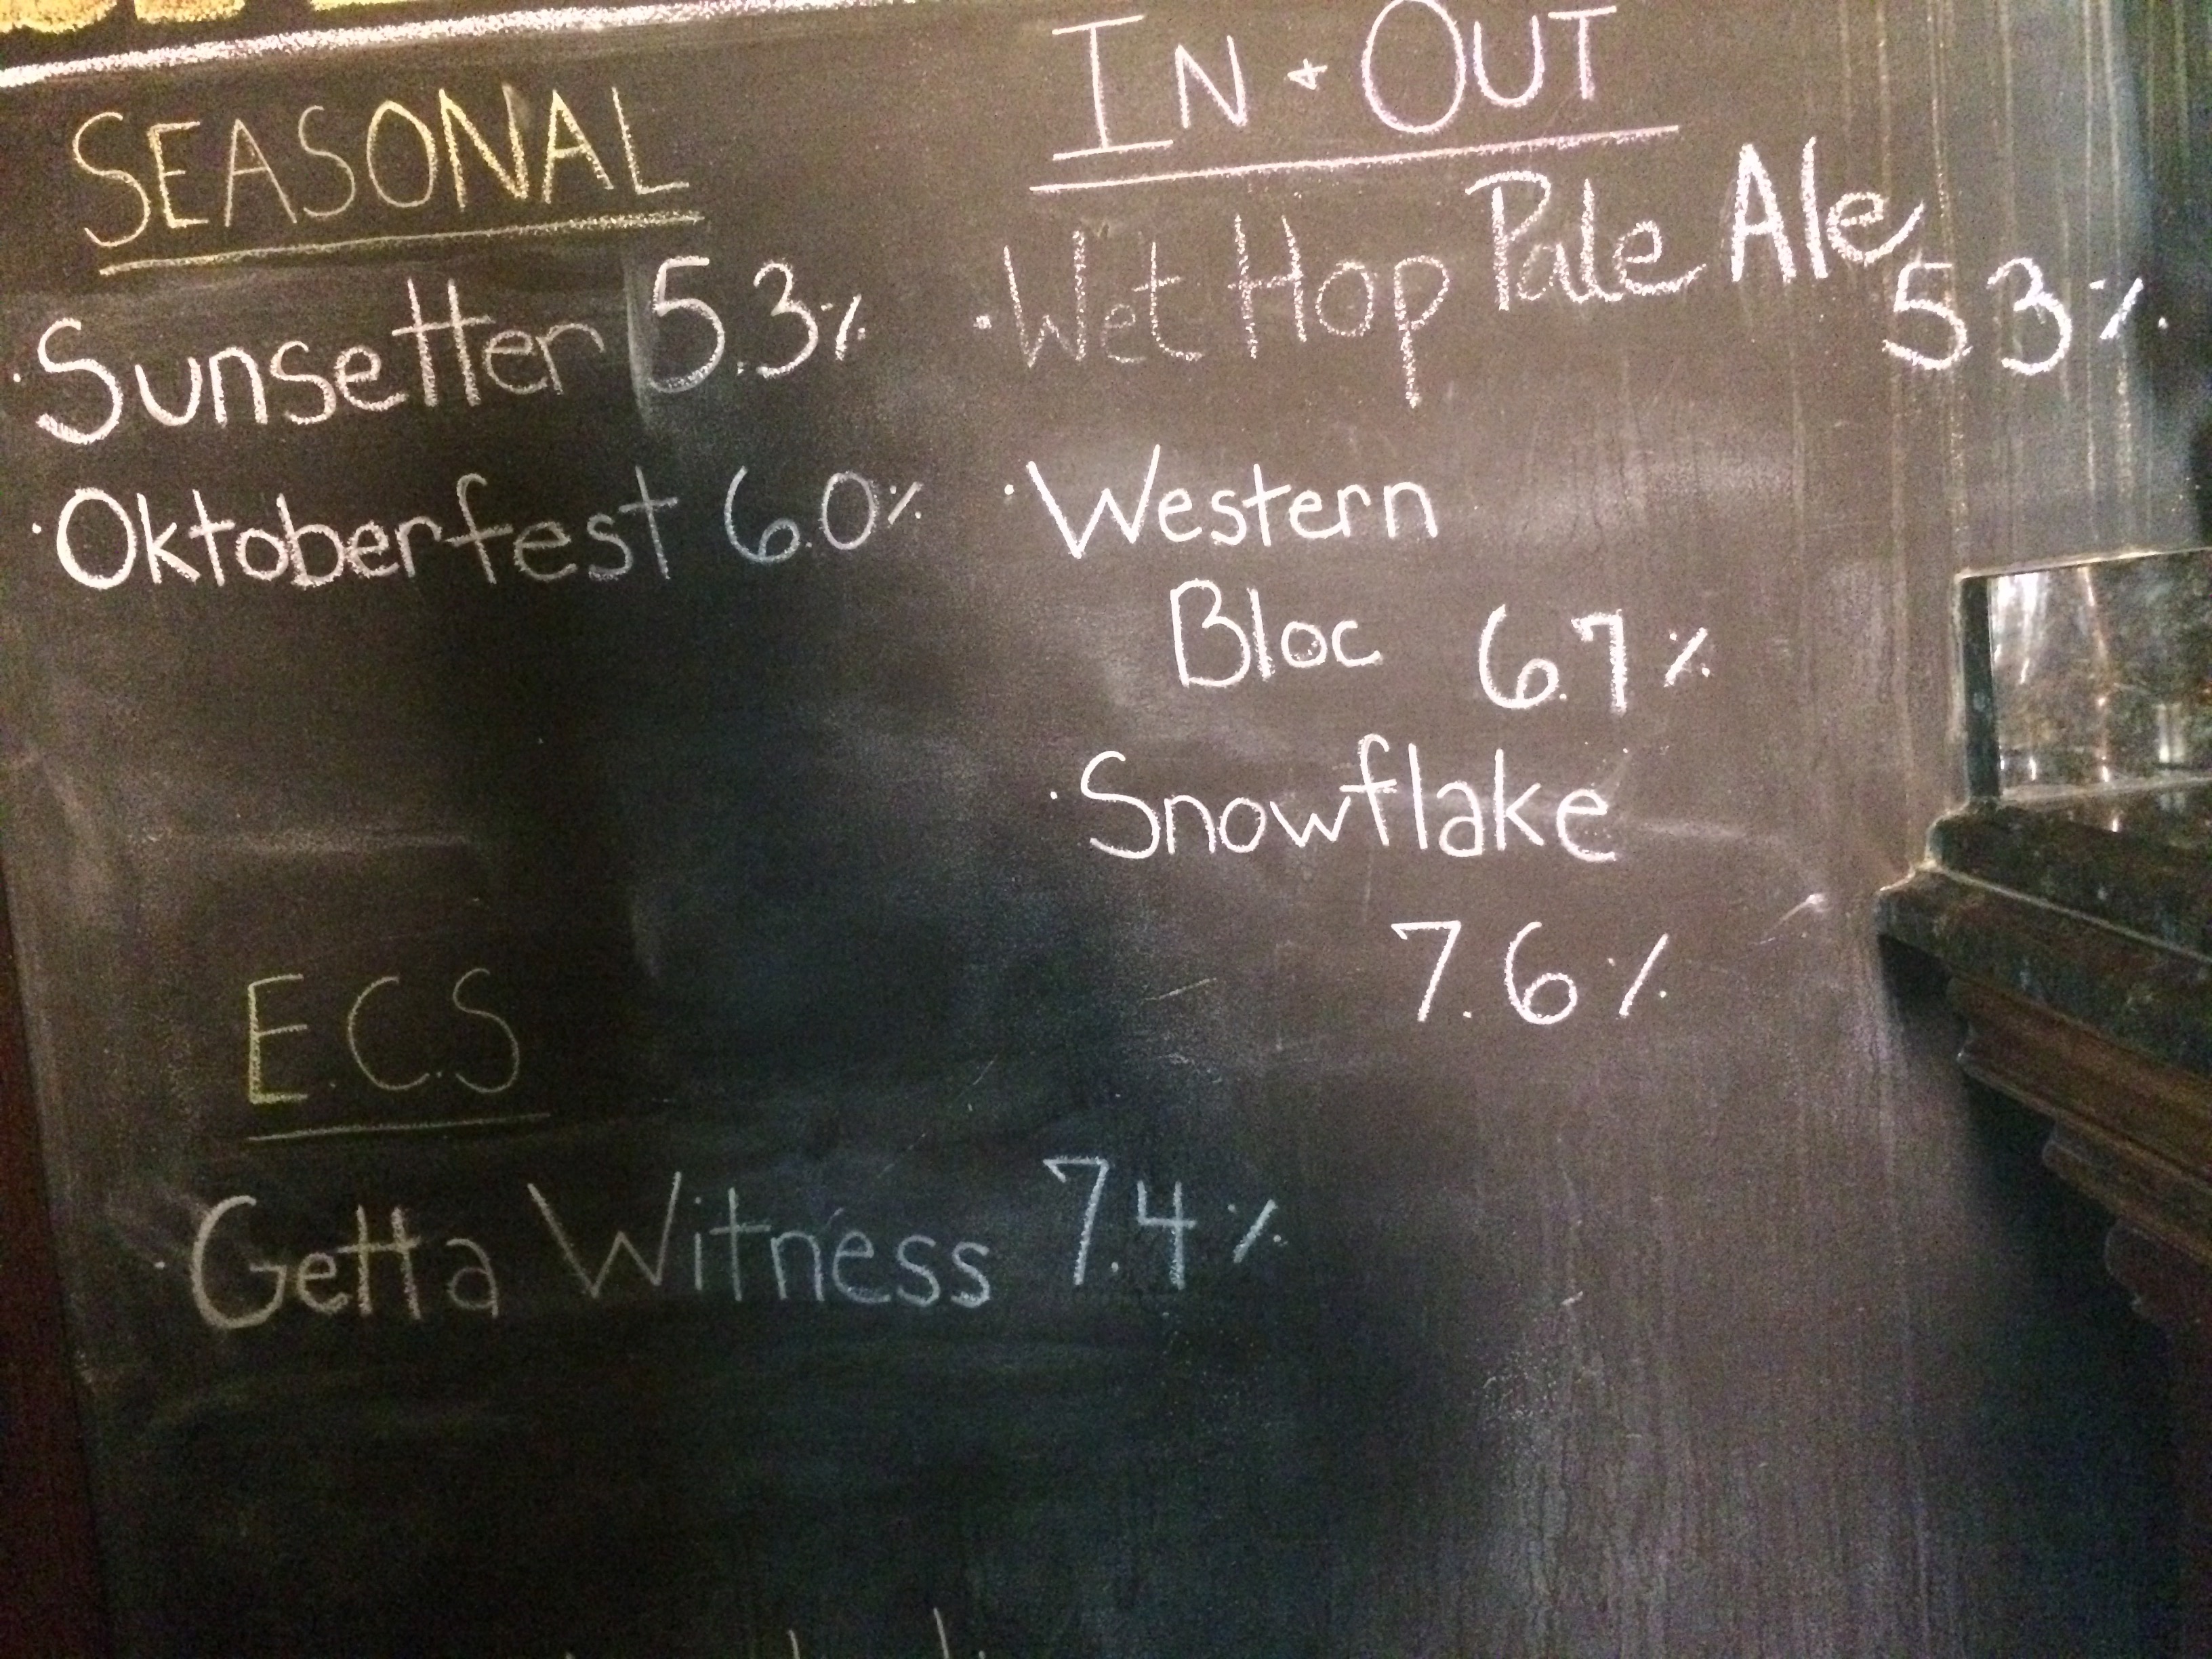 SEASONAL
· Sunsetter 5.3%
· Oktoberfest 6.0%
IN + OUT
· Wet Hop Pale Ale
5.3%
· Western
Bloc 6.7%
· Snowflake
7.6%
E.C.S
· Getta Witness 7.4%